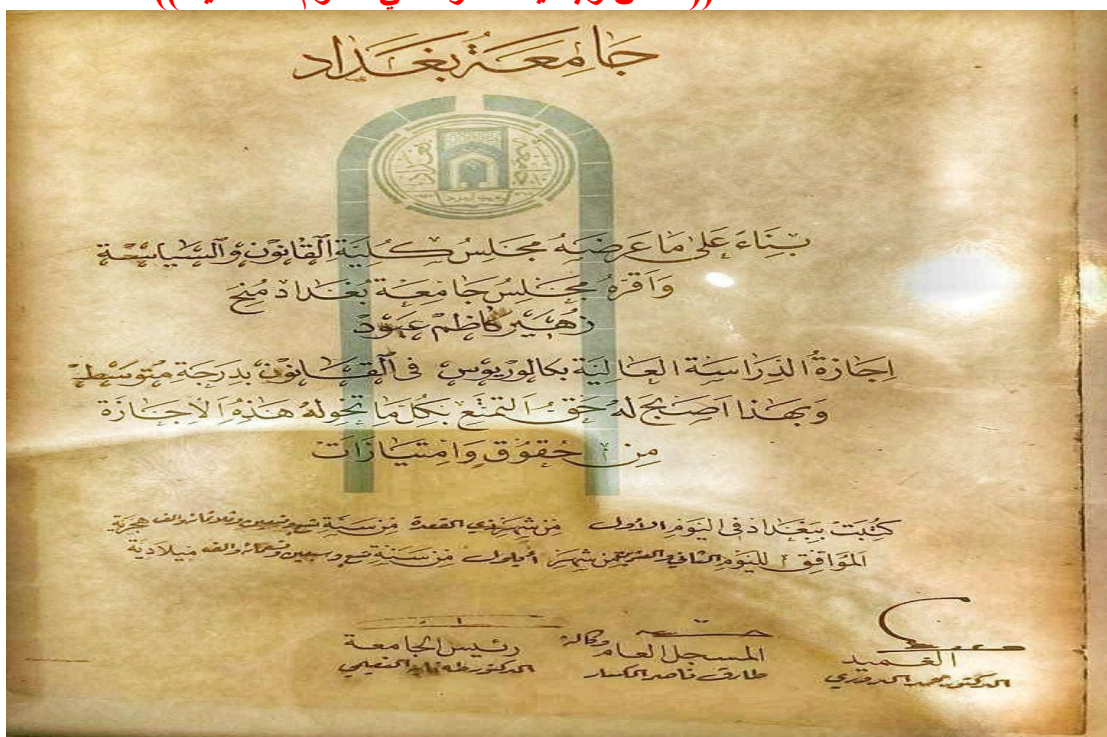 جامعة بغداد
بناء على ما عرضه مجلس كلية القانون والسياسة
واقره مجلس جامعة بغداد منح
زهير كاظم عبود
اجازة الدراسة العالية بكالوريوس في القانون بدرجة متوسط
وبهذا اصبح له حق التمتع بكل ما تخوله هذه الاجازة
من حقوق وامتيازات
كتبت ببغداد في اليوم الاول من شهر ذي القعدة من سنة تسع وتسعين وثلاثمائة والف هجرية
الموافق لليوم الثاني والعشرين من شهر أيلول من سنة تسع وسبعين وتسعمائة والف ميلادية
العميد
الدكتور محمد الدوري
المسجل العام وكالة
طارق ناصر
رئيس الجامعة
الدكتور طه